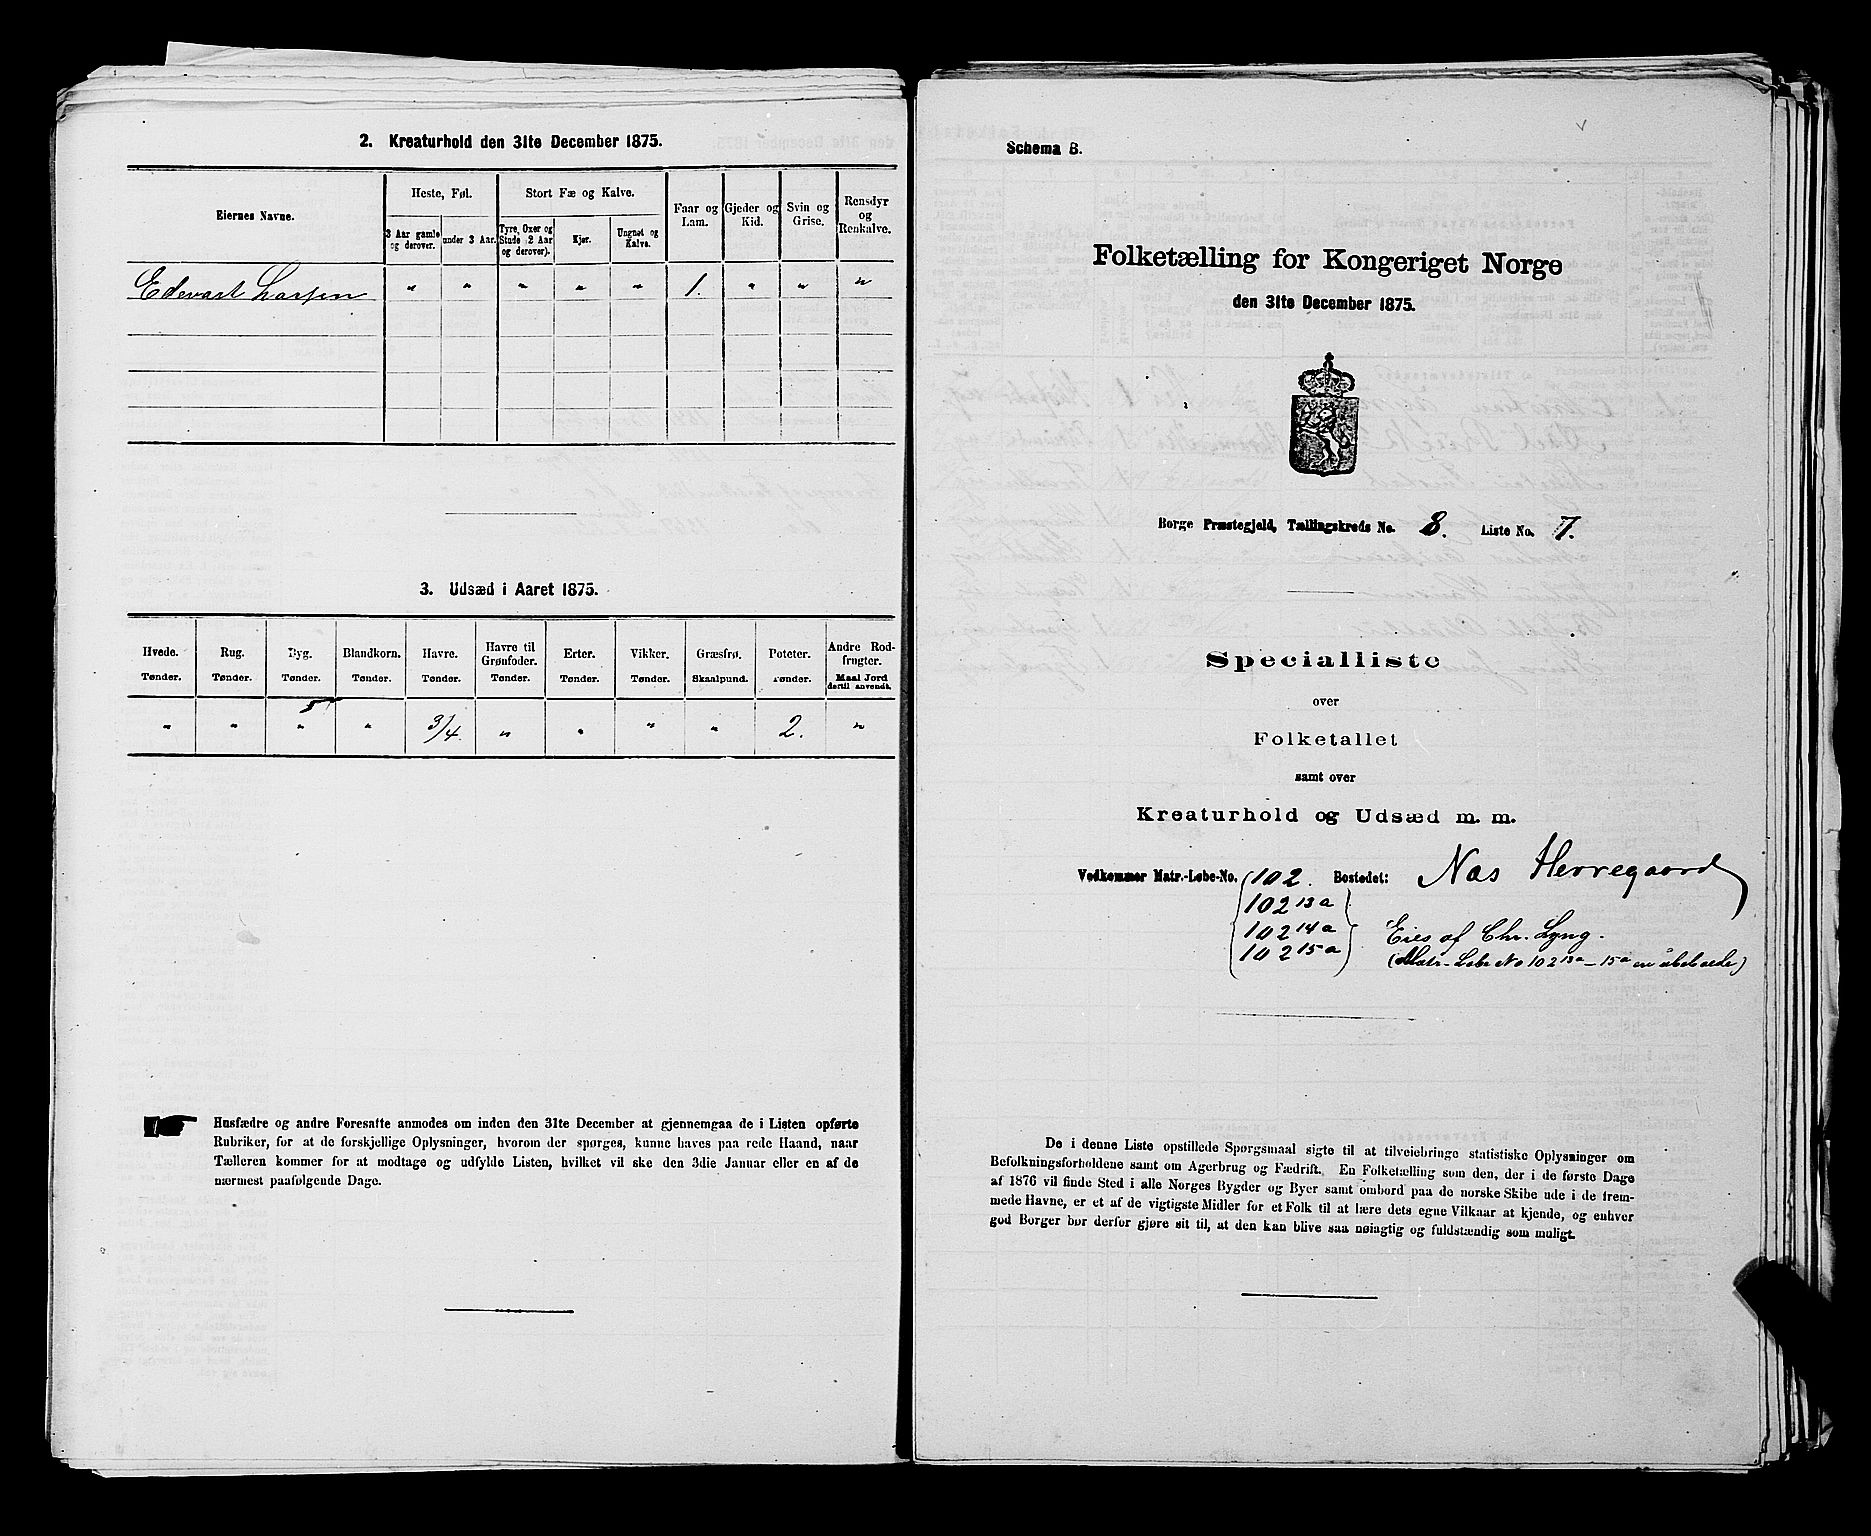 2. Kreaturhold den 31te December 1875.
Eiernes Navne.
Heste, Føl.
Stort Fæ og Kalve.
Faar og Lam.
Gjeder og Kid.
Svin og Grise.
Rensdyr og Renkalve.
3 Aar gamle og derover.
under 3 Aar.
Tyre, Oxer og Stude (2 Aar og derover).
Kjør.
Ungnøt og Kalve.
Edevart Larsen " " " " " 1. " " "
3. Udsæd i Aaret 1875.
Hvede. Rug. Byg. Blandkorn. Havre. Havre til Grønfoder. Erter. Vikker. Græsfrø. Poteter. Andre Rodfrugter.
Tønder. Tønder. Tønder. Tønder. Tønder. Tønder. Tønder. Tønder. Skaalpund. Tønder. Maal Jord dertil anvendt.
" " " " 3/4 " " " " 2. "
Husfædre og andre Foresatte anmodes om inden den 31te December at gjennemgaa de i Listen opførte
Rubriker, for at de forskjellige Oplysninger, hvorom der spørges, kunne haves paa rede Haand, naar
Tælleren kommer for at modtage og udfylde Listen, hvilket vil ske den 3die Januar eller en af de
nærmest paafølgende Dage.
Schema B.
Folketælling for Kongeriget Norge
den 31te December 1875.
Borge Præstegjeld, Tællingskreds No. 8. Liste No. 7.
Specialliste
over
Folketallet
samt over
Kreaturhold og Udsæd m. m.
Vedkommer Matr.-Løbe-No. 102. Bostedet: Næs Herregaard
102 13a
102 14a Eies af Chr. Lyng.
102 15a (Matr-Løbe No 102 13a - 15a er ubeboede)
De i denne Liste opstillede Spørgsmaal sigte til at tilveiebringe statistiske Oplysninger om
Befolkningsforholdene samt om Agerbrug og Fædrift. En Folketælling som den, der i de første Dage
af 1876 vil finde Sted i alle Norges Bygder og Byer samt ombord paa de norske Skibe ude i de frem-
mede Havne, er et af de vigtigste Midler for et Folk til at lære dets egne Vilkaar at kjende, og enhver
god Borger bør derfor gjøre sit til, at den kan blive saa nøiagtig og fuldstændig som muligt.